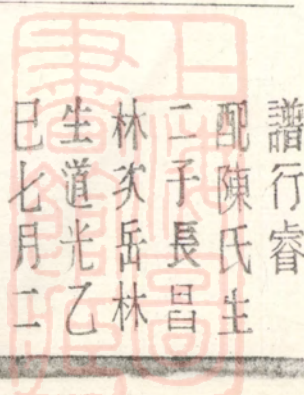 譜行睿
配陳氏生
二子長昌
林次岳林
生道光乙
巳七月二